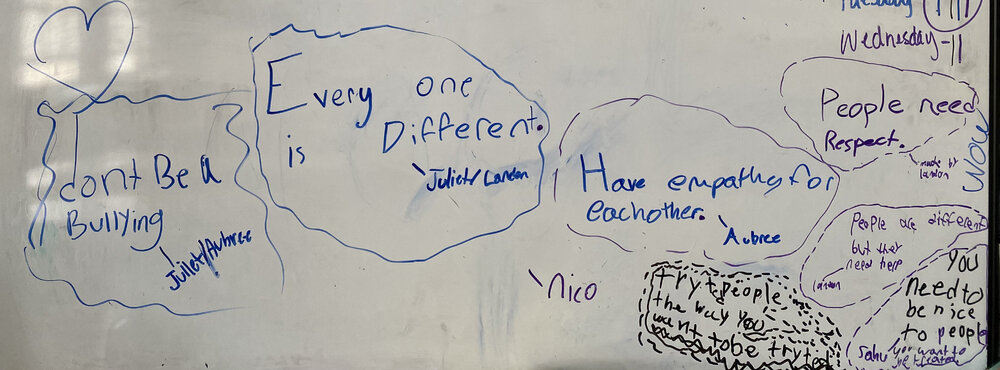 dont Be a
Bullying
Juilet/Aubree
Every one
is Different.
Juliet/Landon
Have empathy for
eachother.
Aubree
nico
Tuesday
Wednesday-11
People need
Respect.
made by
landon
People are different
but they
need help
landon
try people
the way you
want to be tryted
You
need to
be nice
to people
you want to
be treated